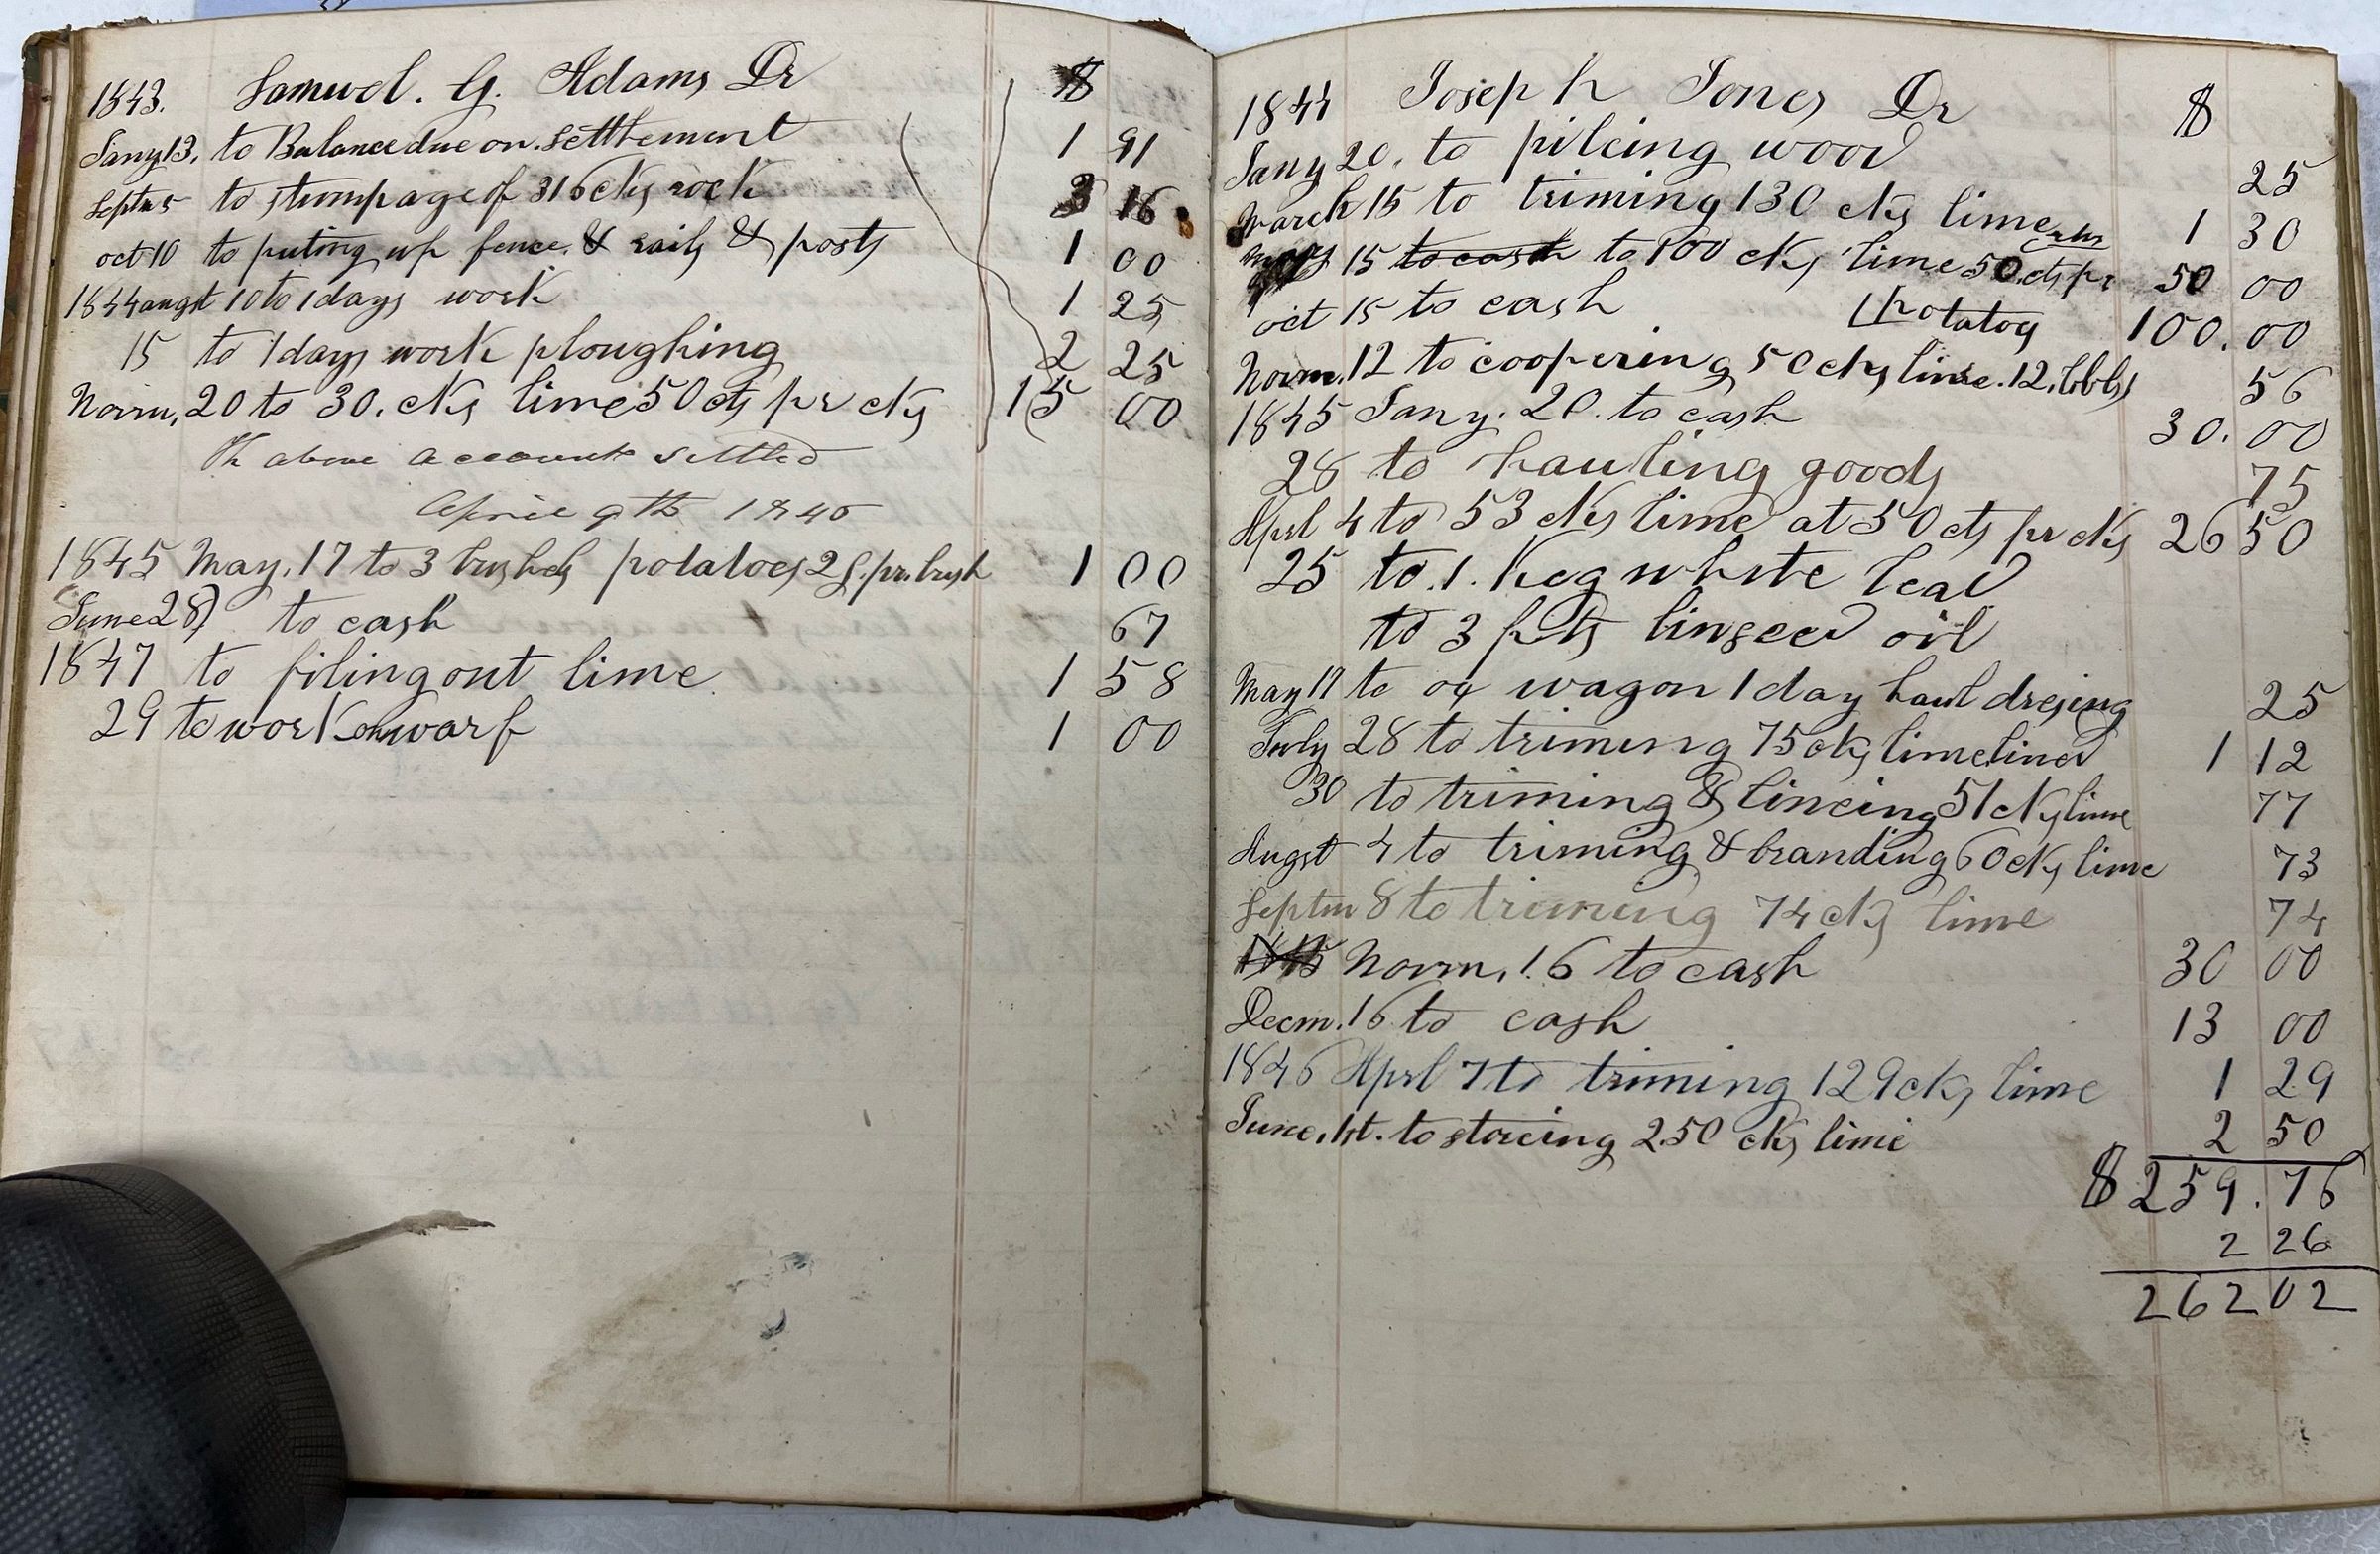 1843. Samuel. G. Adams Dr $
Jany 13, to Balance due on settlement 1 91
Septm 5 to stumpage of 316 cks rock 3 16
oct 10 to puting up fence & rails & posts 1 00
1844 augst 10 to 1 days work 1 25
15 to 1 days work ploughing 2 25
Novm, 20 to 30. cks lime 50 cts pr cks 15 00
The above account settled
April 9th 1845
1845 May, 17 to 3 bushes potatoes 2 S. pr. bush 1 00
June 28 to cash 67
1847 to filing out lime 1 58
29 to work on warf 1 00
1844 Joseph Jones Dr $
Jany 20. to pileing wood 25
March 15 to triming 130 cks lime 1 30
15 to cash to 100 cks lime 50 cts pr 50 00
oct 15 to cash 100.00
potatoy
Novm. 12 to coopering 50 cks lime. 12. bbls 56
1845 Jany. 20. to cash 30. 00
28 to hauling goods 75
Aprl 4 to 53 cks lime at 50 cts pr cks 26 50
25 to. 1. Keg white lead
to 3 pts linseed oil
May 17 to ox wagon 1 day haul dresing 25
July 28 to triming 75 cks lime lined 1 12
30 to triming & lineing 51 cks lime 77
Augst 4 to triming & branding 60 cks lime 73
Septm 8 to triming 74 cks lime 74
1845 Novm, 16 to cash 30 00
Decm. 16 to cash 13 00
1846 Aprl 7 to triming 129 cks lime 1 29
June, 1st. to storeing 250 cks lime 2 50
$ 259. 76
2 26
262 02